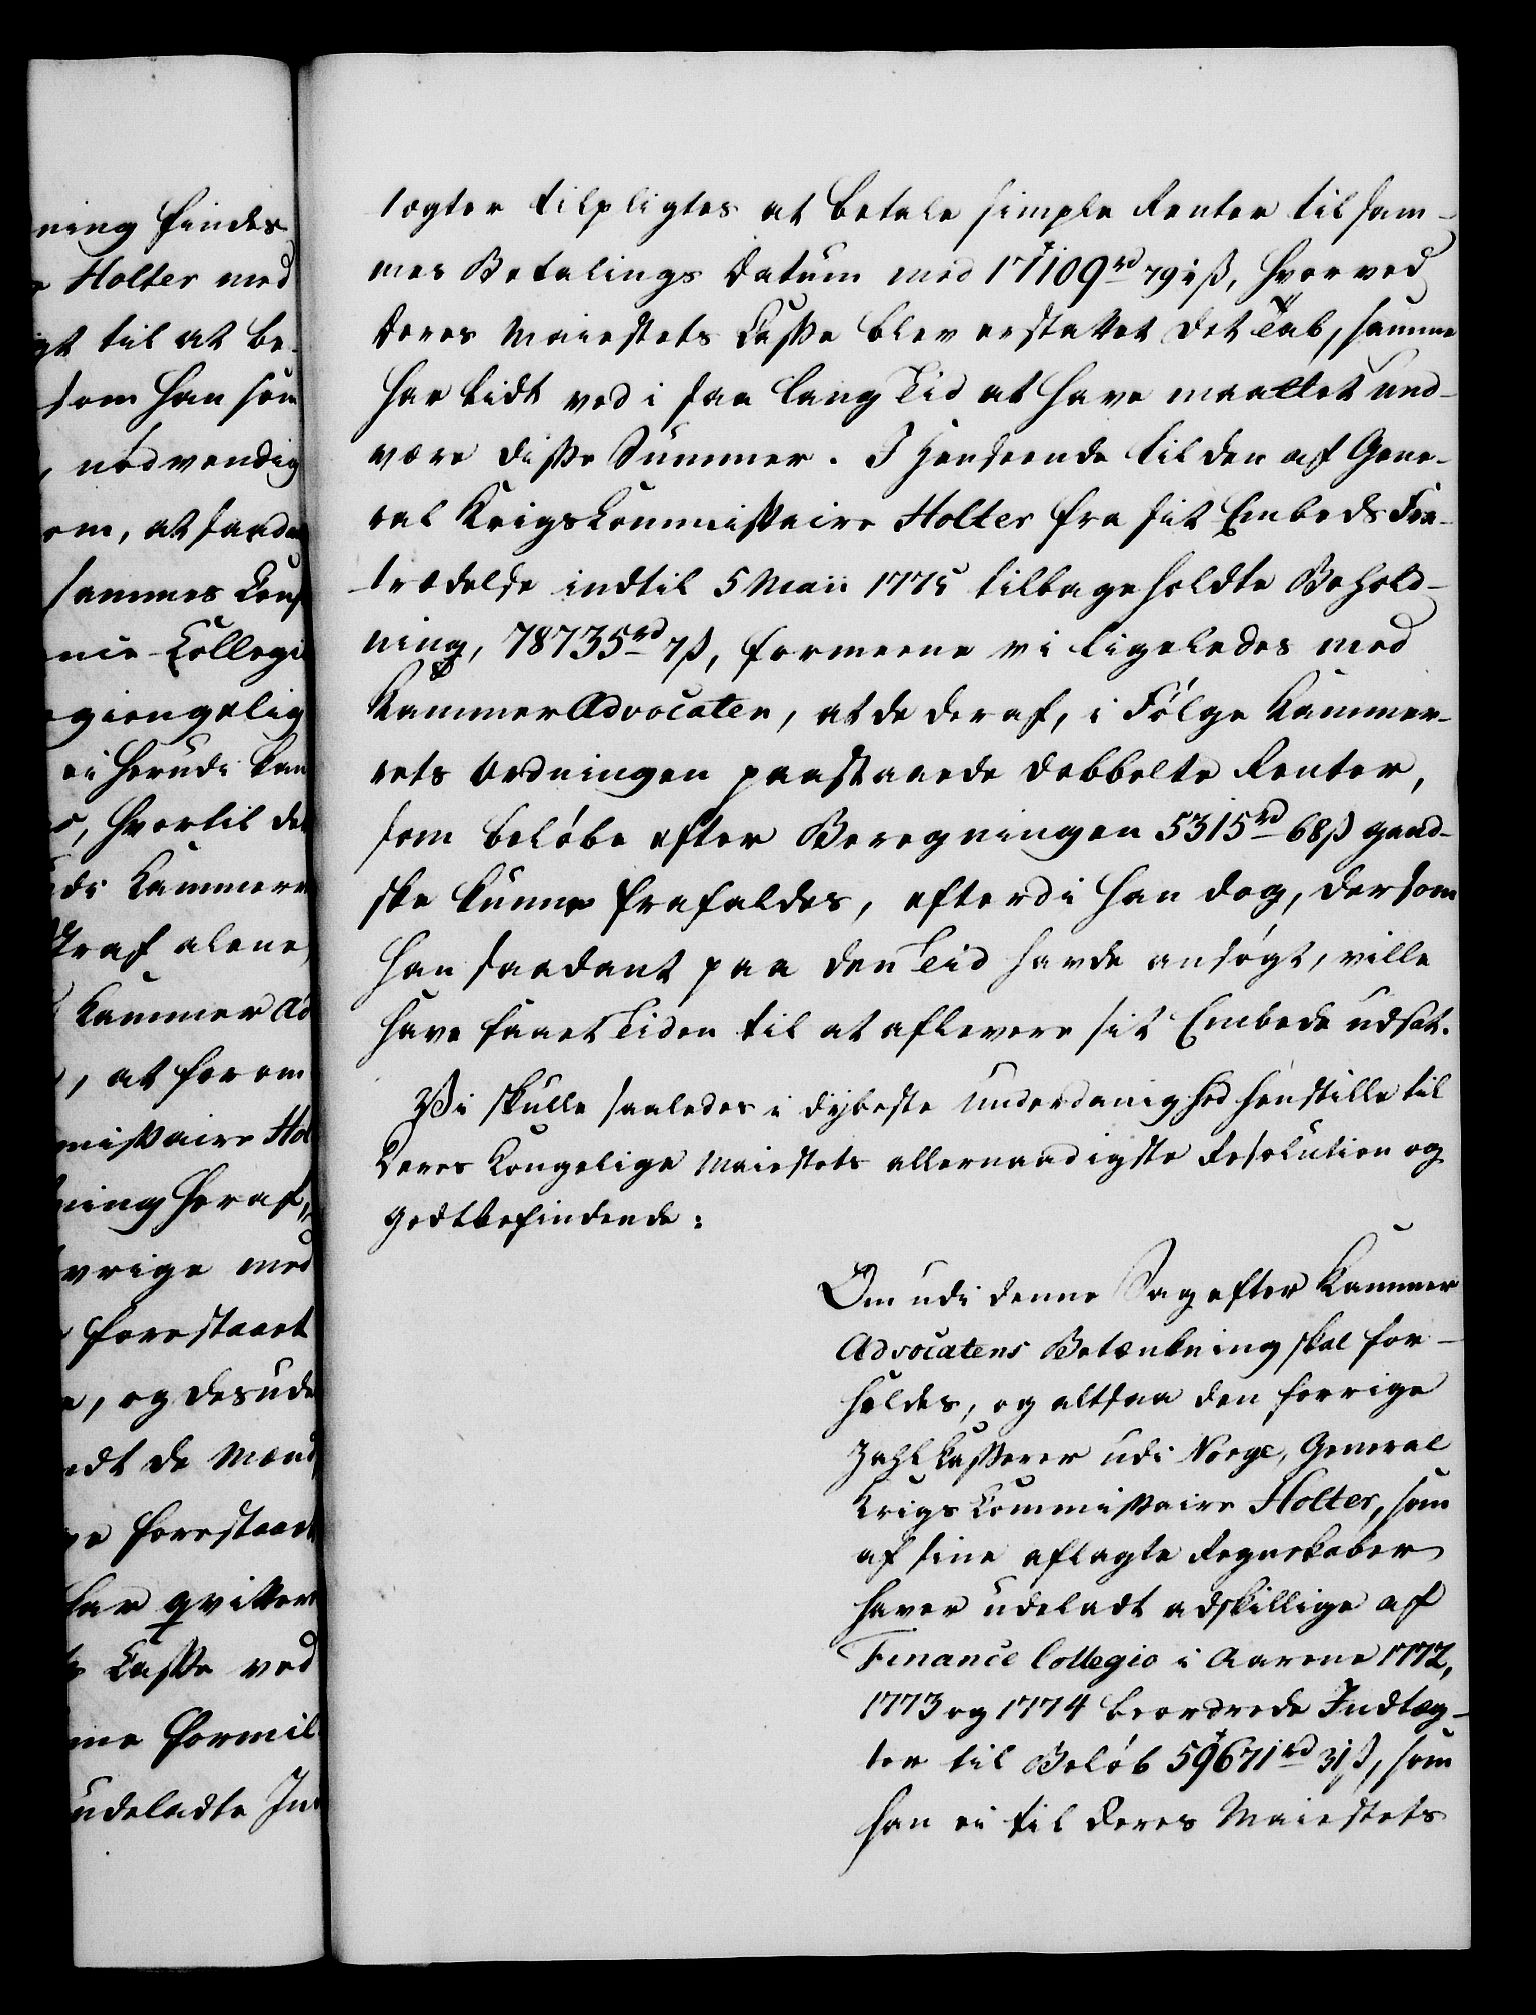 ning findes
Holter med
gt til at be-
som han som
, nødvendig
om, at saadan
sammes
Collegi
giengelig
ei herudi kan
, hvortil de
udi Kammerr
Straf alene,
Kammer Ad
, at for om
missaire Hol
ning heraf,
vrige med
forestaaet
, og desude
edt de Mænd
forestaaet
har qvitter
Casse ved
me formil
udeladte In
tægter tilpligtes at betale simple Renter til sam-
mes Betalings Datum med 17109 rd 79½ ß, hvorved
Deres Maiestets Casse blev erstattet det Tab, samme
har lidt ved i saa lang Tid at have maattet und-
være disse Summer. I Henseende til den af Gene-
ral Krigs Commissaire Holter fra sit Embeds Fra-
trædelse indtil 5 Maii 1775 tilbageholdte Behold-
ning, 78735 rd 7 ß, formeene vi ligeledes med
Kammer Advocaten, at de deraf, i Følge Kammer-
rets Ordningen paastaaede dobbelte Renter,
som beløbe efter Beregningen 5315 rd 68 ß gand-
ske kunne frafaldes, efterdi han dog, dersom
han saadant paa den Tid havde ansøgt, ville
have faaet Tiden til at aflevere sit Embede udsat.
Vi skulle saaledes i dybeste Underdanighed henstille til
Deres Kongelige Maiestets allernaadigste Resolution og
Godtbefindende:
Om udi denne Sag efter Kammer
Advocatens Betænkning skal for-
holdes, og altsaa den forrige
Zahlkasserer udi Norge, General
Krigs Commissaire Holter, som
af sine aflagte Regnskaber
haver udeladt adskillige af
Finance Collegio i Aarene 1772,
1773 og 1774 beordrede Indtæg-
ter til Beløb 59671 rd 31 ß, som
han ei til Deres Maiestets